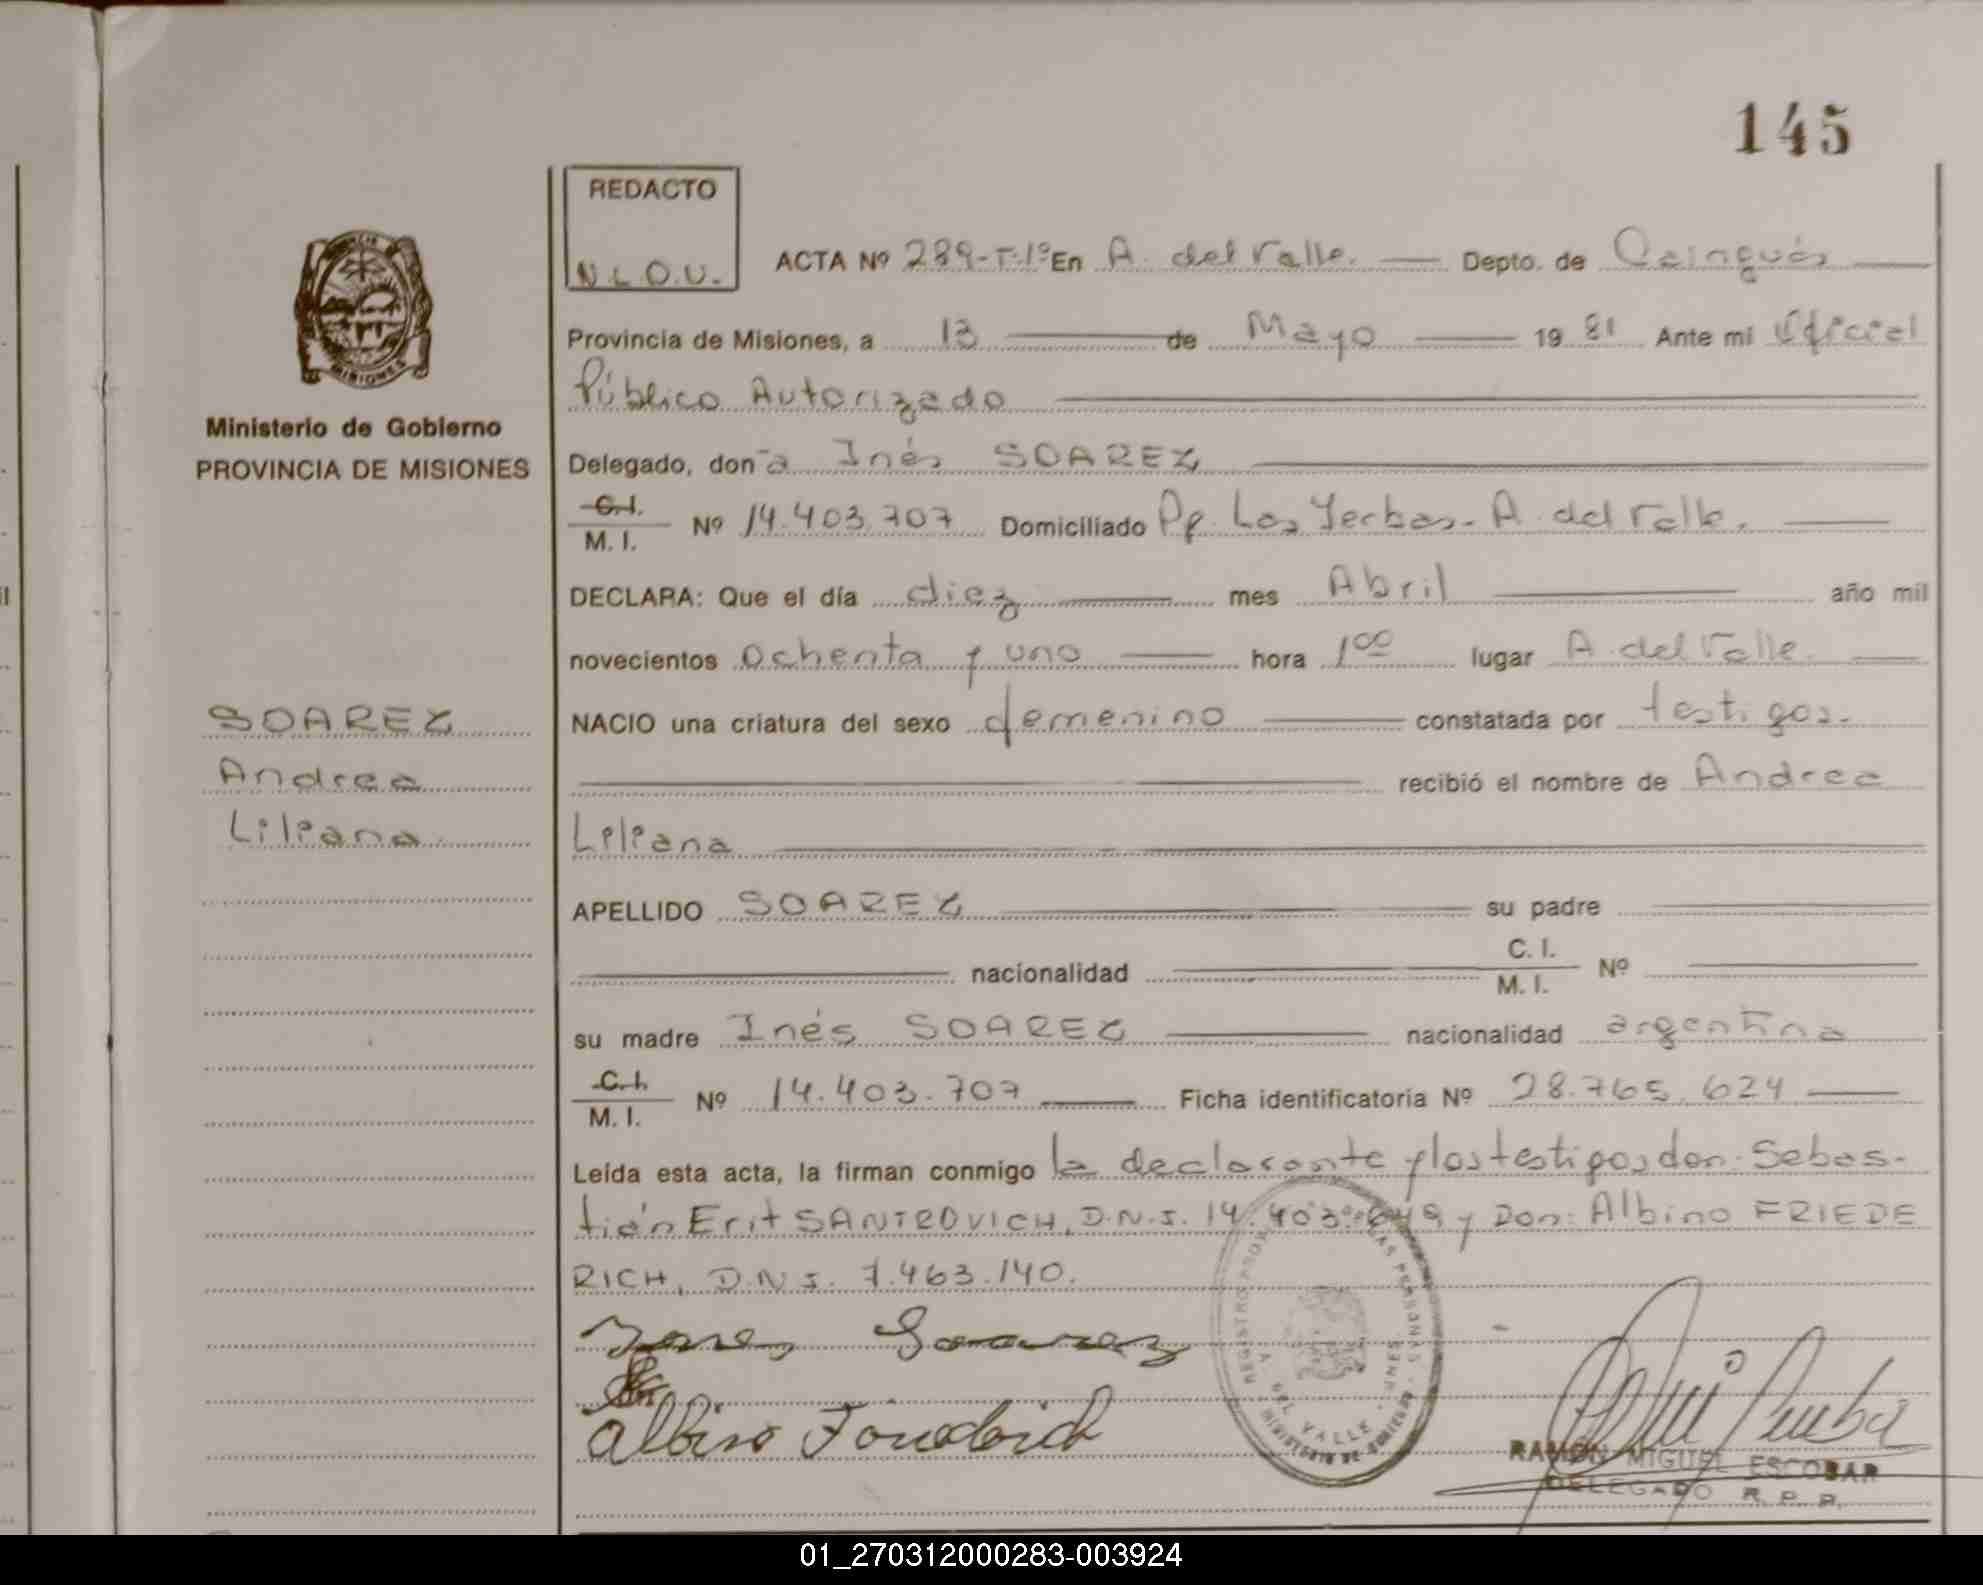 145
REDACTO
N.L.O.U.
ACTA Nº 289-T.1º En A. del Valle. Depto. de Cainguás
Provincia de Misiones, a 13 de Mayo 19 81 Ante mi Oficial
Público Autorizado
Ministerio de Gobierno
PROVINCIA DE MISIONES
Delegado, don ̃a Inés SOAREZ
C.I. / M. I. Nº 14.403.707 Domiciliado Pp. Las Yerbas - A. del Valle.
DECLARA: Que el día diez mes Abril año mil
novecientos ochenta y uno hora 1⁰⁰ lugar A. del Valle.
SOAREZ
Andrea
Liliana
NACIO una criatura del sexo femenino constatada por testigos.
recibió el nombre de Andrea
Liliana
APELLIDO SOAREZ su padre
nacionalidad C. I. / M. I. Nº
su madre Inés SOAREZ nacionalidad argentina
C.I. / M. I. Nº 14.403.707 Ficha identificatoria Nº 28.765.624
Leída esta acta, la firman conmigo la declarante y los testigos, don: Sebas-
tián Erit SANTROVICH, D.N.I. 14.403. y Don: Albino FRIEDE
RICH, D.N.I. 7.463.140.
Soarez
Albino
DEL VALLE
RAMON MIGUEL ESCOBAR
DELEGADO R. P. P.
01_270312000283-003924